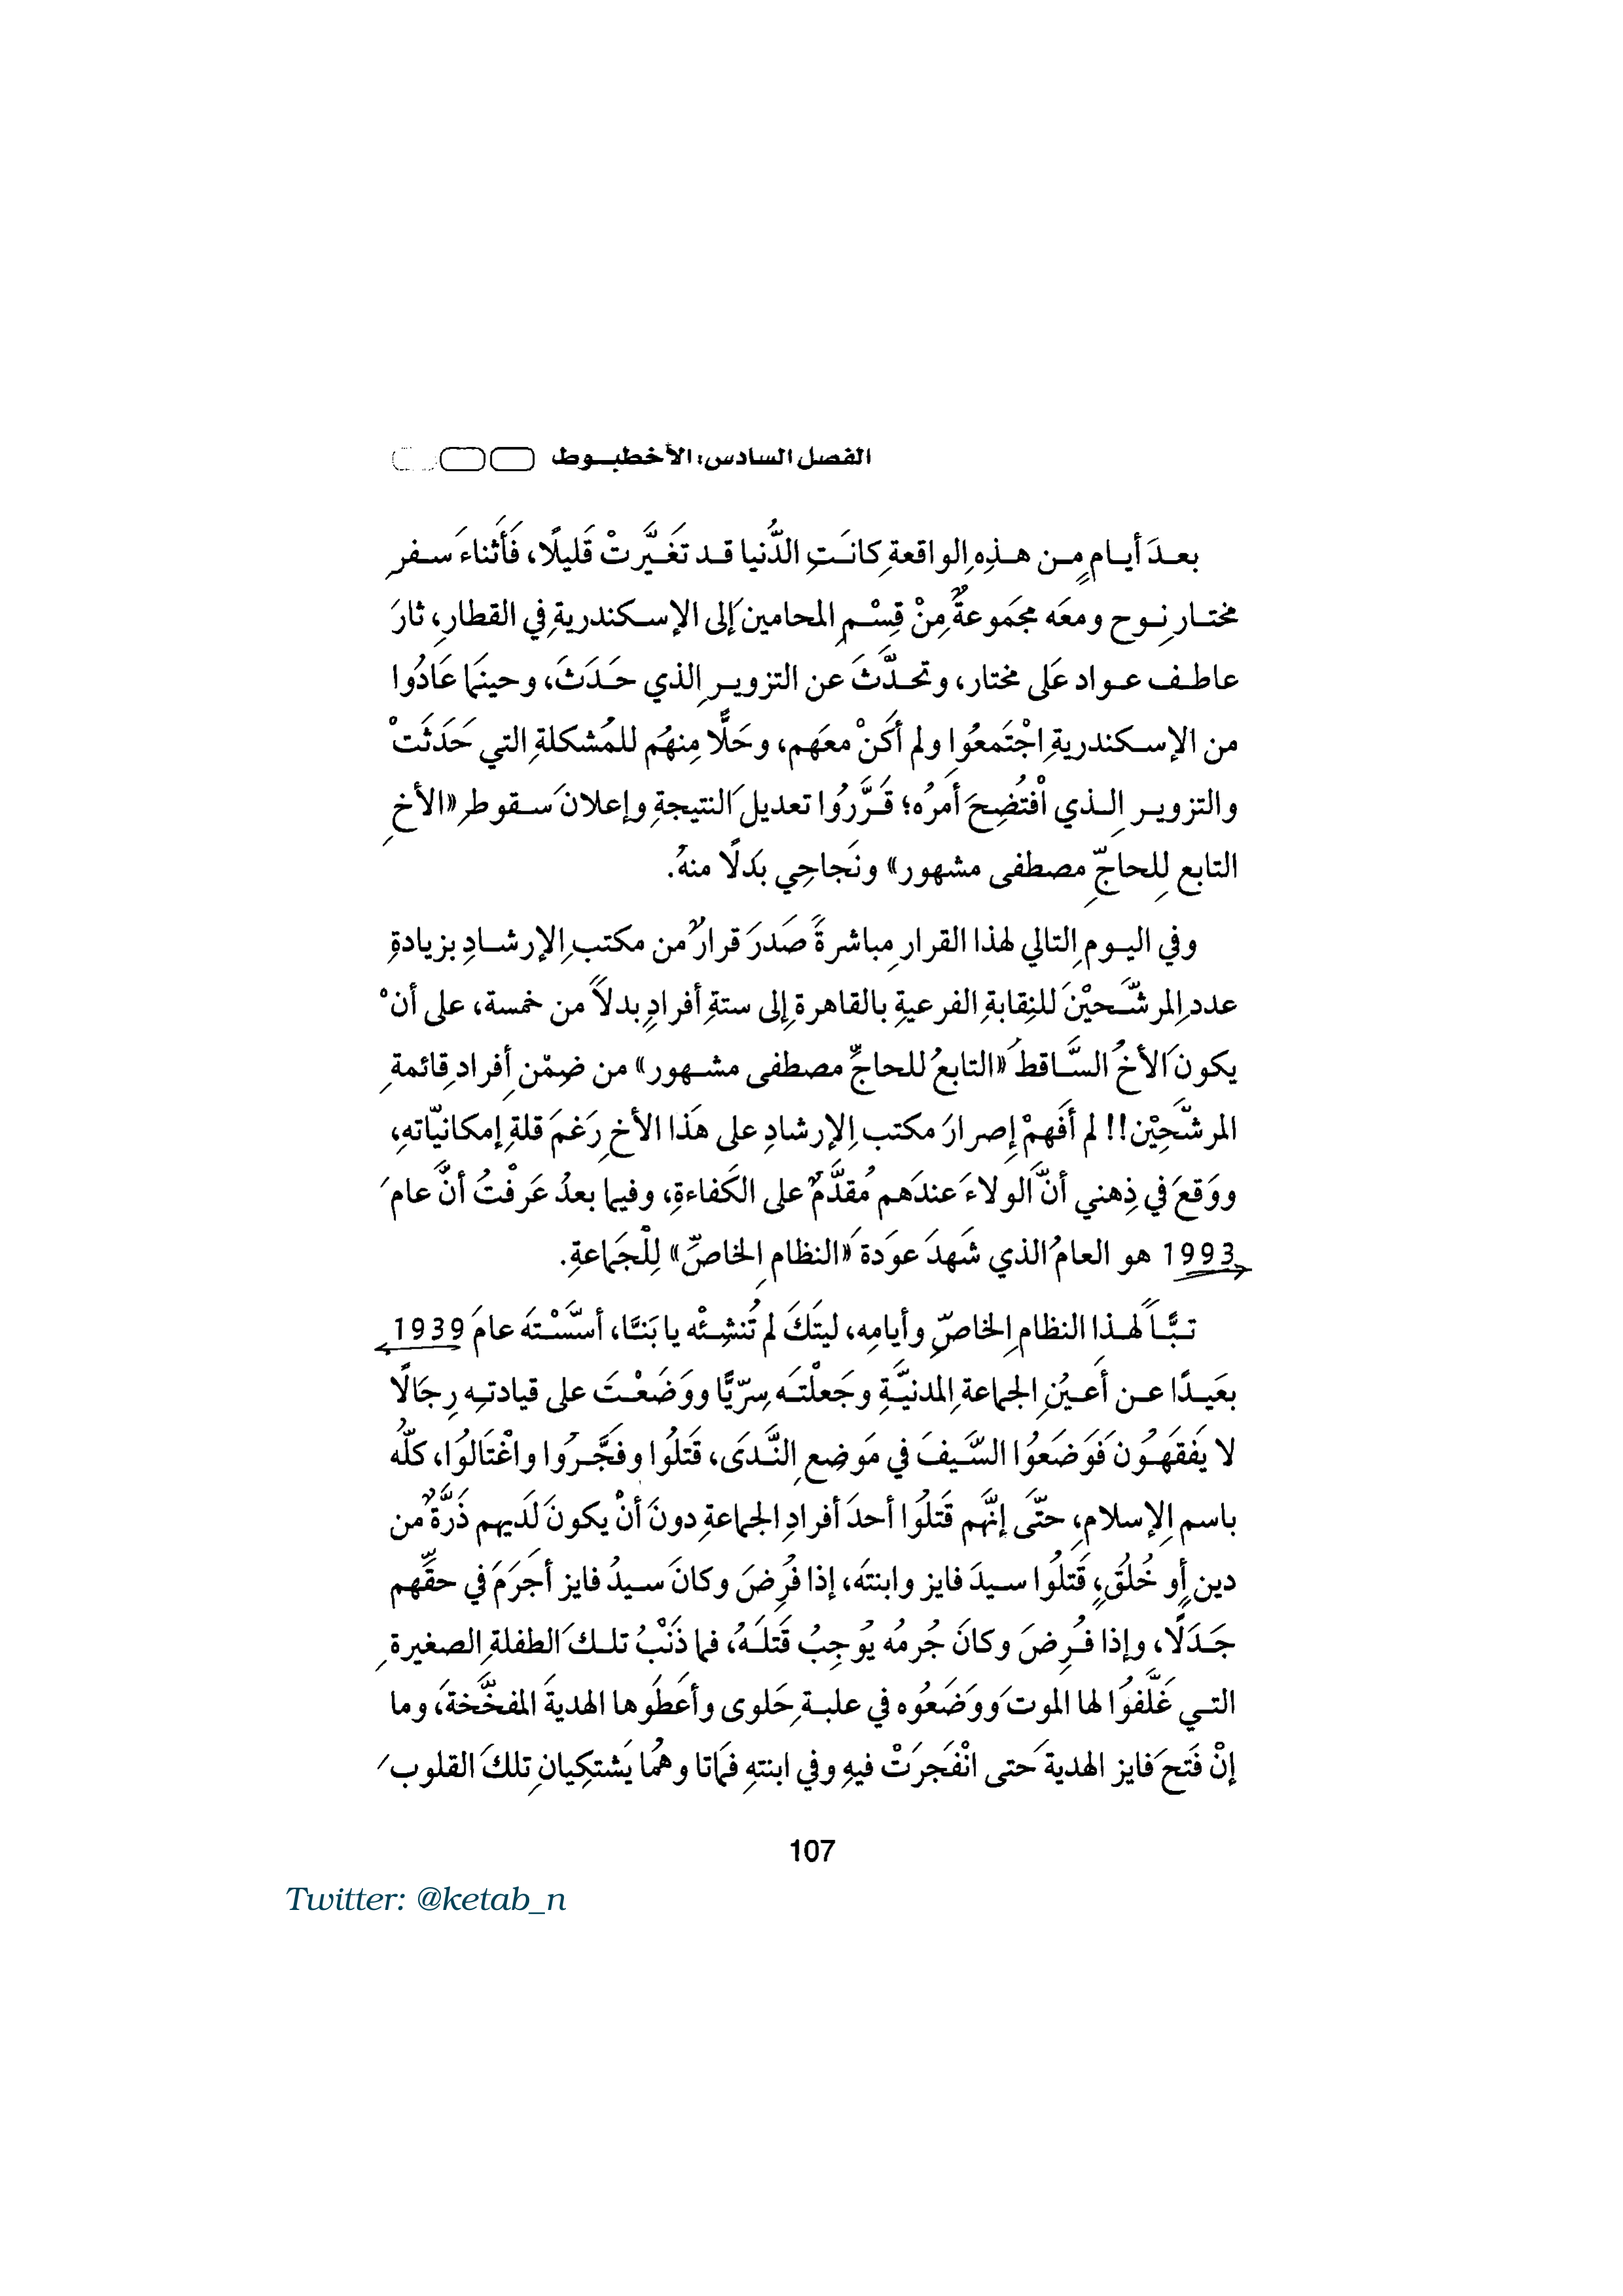 الفصل السادس: الأخطبوط
بعدَ أيام مِن هذِه الواقعةِ كانَتِ الدُّنيا قد تَغيَّرتْ قَليلًا، فَأَثناءَ سفرِ
مختار نوح ومعَه مجَموعةٌ مِنْ قِسْمِ المحامين إلى الإسكندرية في القطارِ، ثارَ
عاطف عواد عَلى مختار، وتحدَّثَ عن التزويرِ الذي حَدَثَ، وحينَما عَادُوا
من الإسكندريةِ اجْتَمعُوا ولم أكَنْ معَهم، وحَلًّا مِنهُم للمُشكلةِ التي حَدَثَتْ
والتزويرِ الذي افْتُضِحَ أمرُه؛ قَرَّرُوا تعديلَ النتيجةِ وإعلانَ سقوطِ «الأخِ
التابع لِلحاجِّ مصطفى مشهور» ونَجاحِي بَدلًا منهُ.
وفي اليومِ التالي لهذا القرارِ مباشرةً صَدرَ قرارٌ من مكتبِ الإرشادِ بزيادةِ
عددِ المرشَّحيْنَ للنِقابةِ الفرعيةِ بالقاهرةِ إلى ستةِ أفرادٍ بدلاً من خمسة، على أنْ
يكونَ الأخُ السَّاقطُ «التابعُ للحاجِّ مصطفى مشهور» من ضِمْنِ أفرادِ قائمةِ
المرشَّحِيْن!! لم أَفَهمْ إصرارَ مكتبِ الإرشادِ على هَذا الأخِ رَغمَ قلةِ إمكانيَّاتهِ،
ووَقعَ في ذِهني أنَّ الولاءَ عندَهم مُقدَّمٌ على الكَفاءةِ، وفيما بعدُ عَرفْتُ أنَّ عامَ
1993 هو العامُ الذي شَهدَ عوَدةَ «النظامِ الخاصِّ» لِلْجَماعةِ.
تبًّا لهذا النظامِ الخاصِّ وأيامِه، ليتَكَ لم تُنشِئْه يا بَنَّا، أسَّسْتَه عامَ 1939
بعَيدًا عن أَعيُنِ الجماعةِ المدنيَّةِ وجَعلْتَه سِرّيًّا ووَضَعْتَ على قيادتِه رِجَالًا
لا يَفقَهُون فَوَضَعُوا السَّيفَ في مَوضِعِ النَّدَى، قَتلُوا وفَجَّرُوا واغْتَالُوا، كلُّه
باسمِ الإسلامِ، حتَّى إنَّهم قَتلُوا أحدَ أفرادِ الجماعةِ دونَ أنْ يكونَ لَديهم ذَرَّةٌ من
دينٍ أو خُلُقٍ، قَتلُوا سيدَ فايز وابنتَه، إذا فُرِضَ وكانَ سيدُ فايز أجَرَمَ في حقِّهم
جَدَلًا، وإذا فُرِضَ وكانَ جُرمُه يُوجِبُ قَتلَهُ، فما ذَنْبُ تلكَ الطفلةِ الصغيرةِ
التي غَلَّفوُا لها الموتَ ووَضَعُوه في علبةِ حَلوى وأعَطَوها الهديةَ المفخَّخةَ، وما
إنْ فَتحَ فايز الهديةَ حتى انْفَجرَتْ فيهِ وفي ابنتهِ فمَاتا وهُما يَشتكِيانِ تلكَ القلوبَ
107
Twitter: @ketab_n